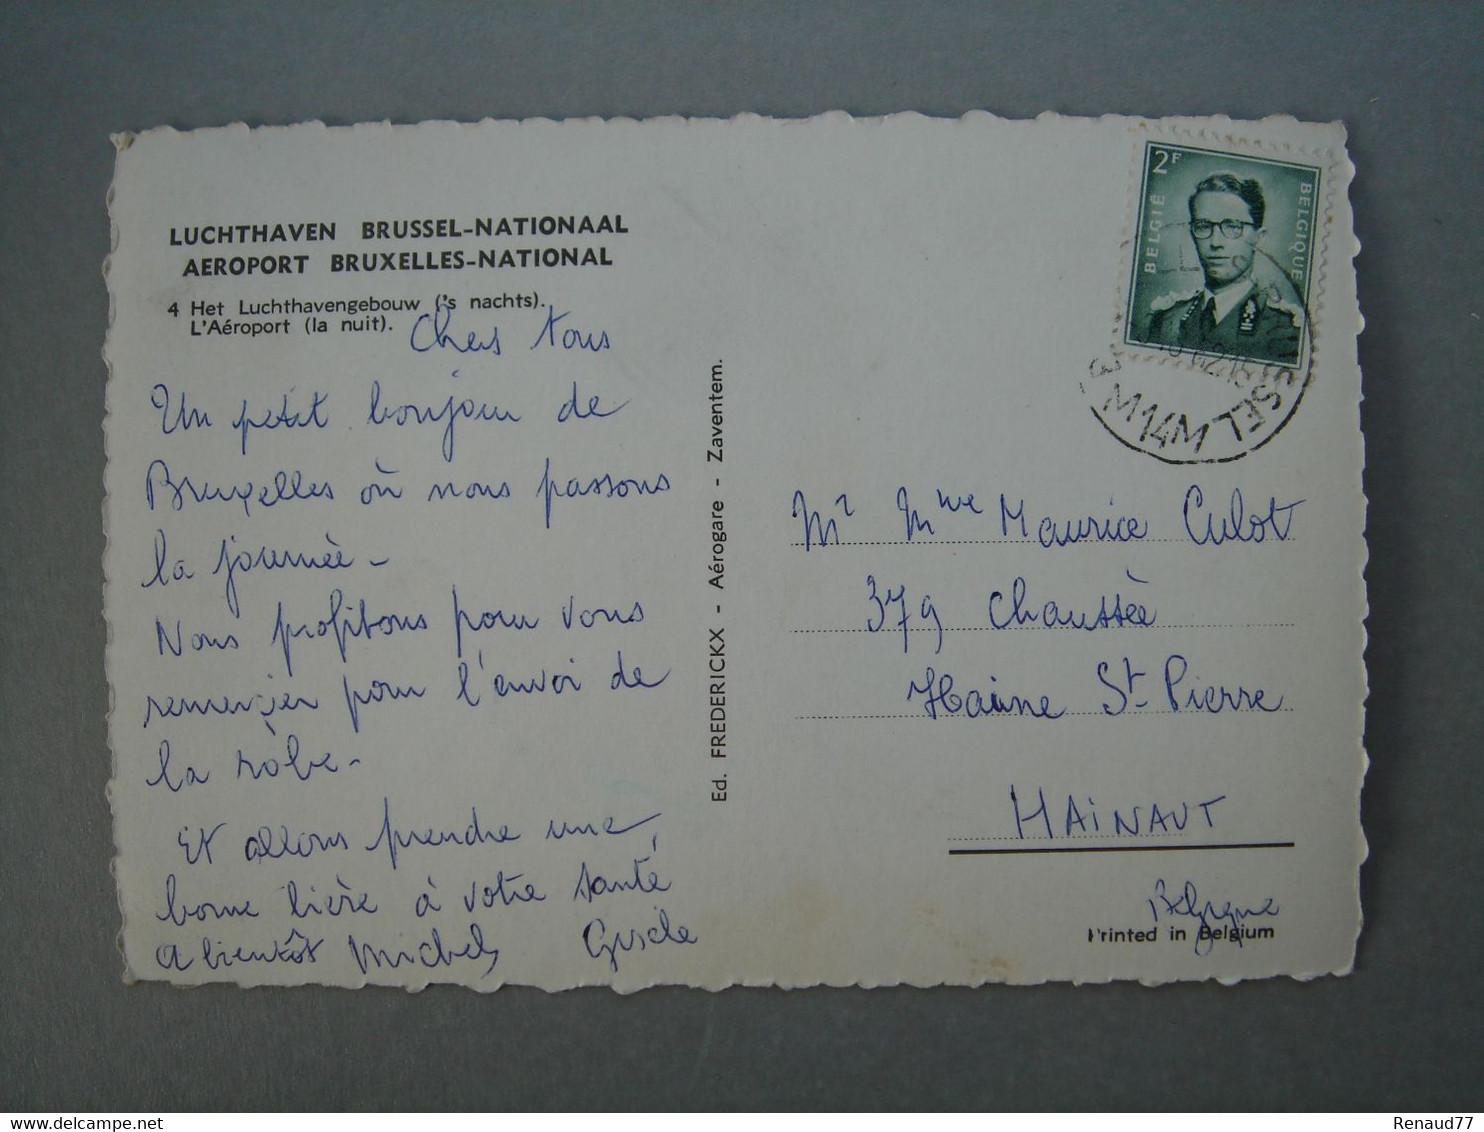 LUCHTHAVEN BRUSSEL-NATIONAAL
AEROPORT BRUXELLES-NATIONAL
4 Het Luchthavengebouw ('s nachts).
L'Aéroport (la nuit).
Chers tous
Un petit bonjour de
Bruxelles où nous passons
la journée -
Nous profitons pour vous
remercier pour l'envoi de
la robe -
Et allons prendre une
bonne bière à votre santé
A bientôt Michel Gisèle
Ed. FREDERICKX - Aérogare - Zaventem.
2F
BELGIË
BELGIQUE
M14M
Mr Mme Maurice Culot
379 Chaussée
Haine St Pierre
HAINAUT
Belgique
Printed in Belgium
Renaud77